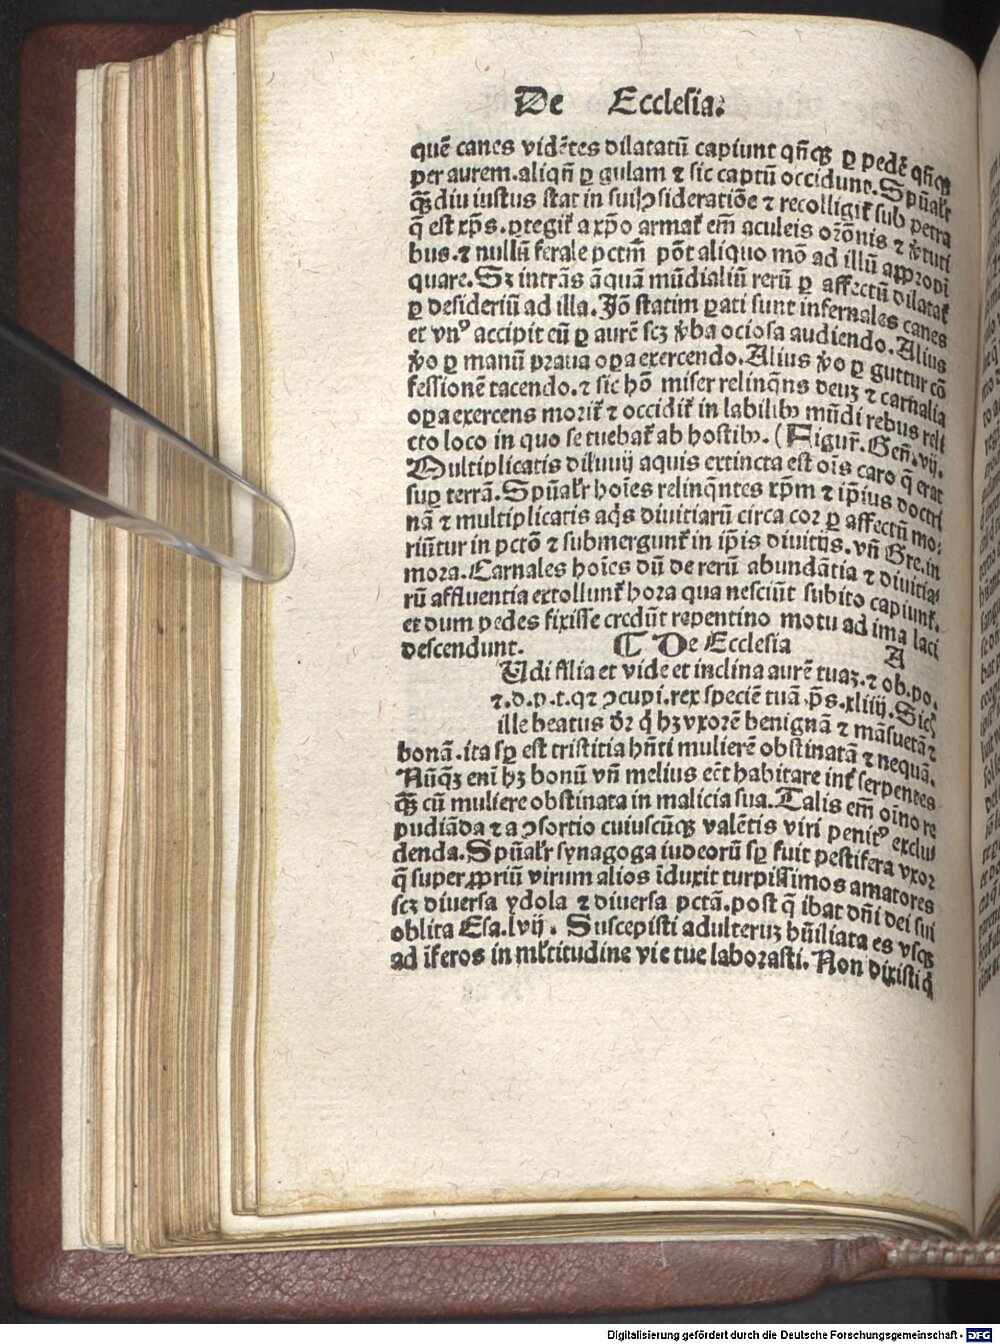 De Ecclesia.
quē canes vidētes dilatatū capiunt qn̄cꝫ ꝑ pedē qn̄cꝫ
per aurem. aliqn̄ ꝑ gulam ⁊ sic captū occidunt. Spūal'r
qꝫdiu iustus stat in sui ꝯsideratiōe ⁊ recolligit͛ sub petra
q̄ est xp̄s. ꝓtegit͛ a xp̄o armat͛ em̄ aculeis orōnis ⁊ v̓tuti
bus. ⁊ nullū ferale pctm̄ pōt aliquo mō ad illū appropi
quare. Sꝫ intrās aquā mūdialiū rerū ꝑ affectū dilatat͛
ꝑ desideriū ad illa. Jō statim ꝑati sunt infernales canes
et vnꝰ accipit eū ꝑ aurē scꝫ v̓ba ociosa audiendo. Alius
v̓o ꝑ manū praua oꝑa exercendo. Alius v̓o ꝑ guttur cō
fessionē tacendo. ⁊ sic hō miser relinqn̄s deuꝫ ⁊ carnalia
oꝑa exercens morit͛ ⁊ occidit͛ in labilibꝫ mūdi rebus reli
cto loco in quo se tuebat͛ ab hostibꝫ. (Figur͛. Gen̄. vij.
Multiplicatis diluuij aquis extincta est oīs caro q̄ erat
suꝑ terrā. Spūal'r hoīes relinqn̄tes xp̄m ⁊ ip̄ius doctri
nā ⁊ multiplicatis aq̇s diuitiarū circa cor ꝑ affectū mo⸗
riūtur in pctō ⁊ submergunt͛ in ip̄is diuitijs. vn̄ Gre. in
mora. Carnales hoīes dū de rerū abundātia ⁊ diuitia⸗
rū affluentia extollunt͛ hora qua nesciūt subito capiunt͛.
et dum pedes fixisse credūt repentino motu ad ima laci
descendunt. ⸿ De Ecclesia A
Udi filia et vide et inclina aurē tuaꝫ. ⁊ ob. po.
t. ⁊. d. p. t. q ⁊ ꝯcupi. rex speciē tuā. p̄s. xliiij. Sic
ille beatus dr̄ q̇ hꝫ vxorē benignā ⁊ māsuetā ⁊
bonā. ita sꝑ est tristitia hn̄ti mulierē obstinatā ⁊ nequā.
Nūqꝫ enī hꝫ bonū vn̄ melius eēt habitare int͛ serpentes
qꝫ cū muliere obstinata in malicia sua. Talis em̄ oīno re
pudiāda ⁊ a ꝯsortio cuiuscūqꝫ valētis viri penitꝰ exclu⸗
denda. Spūal'r synagoga iudeorū sꝑ fuit pestifera vxor
q̄ super ꝓpriū virum alios īduxit turpissimos amatores
scꝫ diuersa ydola ⁊ diuersa pctā. post q̄ ibat dn̄i dei sui
oblita Esa. lvij. Suscepisti adulteruꝫ hūiliata es vsqꝫ
ad īferos in ml'titudine vie tue laborasti. Non dixisti q̇
Digitalisierung gefördert durch die Deutsche Forschungsgemeinschaft - DFG